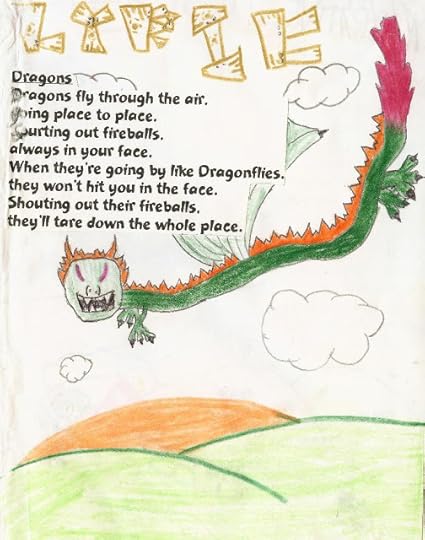 Dragons
Dragons fly through the air.
going place to place.
Spurting out fireballs.
always in your face.
When they're going by like Dragonflies.
they won't hit you in the face.
Shouting out their fireballs.
they'll tare down the whole place.